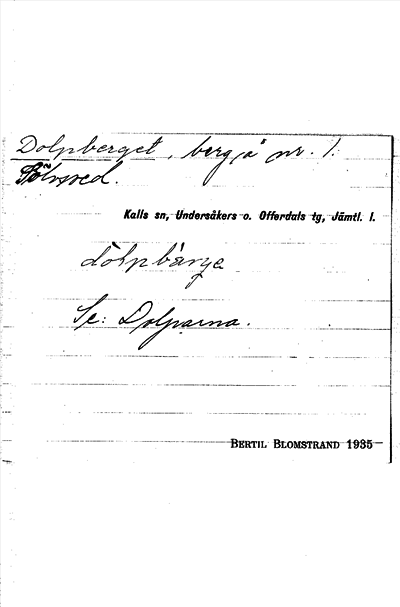 Dolpberget, berg å nr. 1.
Sölvsved.
Kalls sn, Undersåkers o. Offerdals tg, Jämtl. l.
dòlpbàrγe
Se: Dolparna.
BERTIL BLOMSTRAND 1935